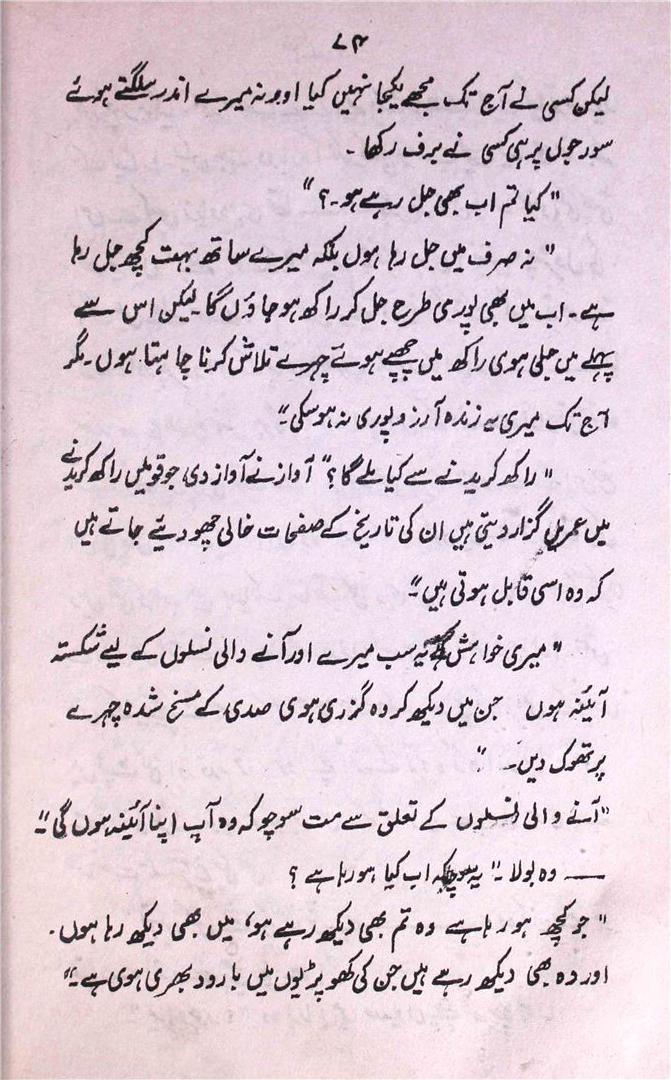 ۷۴
لیکن کسی نے آج تک مجھے یکجا نہیں کیا اور نہ میرے اندر سلگتے ہوئے
سورجوں پر ہی کسی نے برف رکھا ۔
"کیا تم اب بھی جل رہے ہو۔؟"
"نہ صرف میں جل رہا ہوں بلکہ میرے ساتھ بہت کچھ جل رہا
ہے۔ اب میں بھی پوری طرح جل کر راکھ ہو جاؤں گا لیکن اس سے
پہلے میں جلی ہوی راکھ میں چھپے ہوئے چہرے تلاش کرنا چاہتا ہوں۔ مگر
آج تک میری یہ زندہ آرزو پوری نہ ہوسکی۔"
"راکھ کریدنے سے کیا ملے گا؟" آواز نے آواز دی، جو قومیں راکھ کریدنے
میں عمریں گزار دیتی ہیں ان کی تاریخ کے صفحات خالی چھوڑ دیئے جاتے ہیں
کہ وہ اسی قابل ہوتی ہیں۔"
"میری خواہش ہے یہ سب میرے اور آنے والی نسلوں کے لیے شکستہ
آئینہ ہوں جن میں دیکھ کر وہ گزری ہوی صدی کے مسخ شدہ چہرے
پر تھوک دیں۔"
"آنے والی نسلوں کے تعلق سے مت سوچو کہ وہ آپ اپنا آئینہ ہوں گی"
—— وہ بولا ۔" یہ سوچو کہ اب کیا ہو رہا ہے ؟
"جو کچھ ہو رہا ہے وہ تم بھی دیکھ رہے ہو، میں بھی دیکھ رہا ہوں۔
اور وہ بھی دیکھ رہے ہیں جن کی کھوپڑیوں میں بارود بھری ہوی ہے۔"